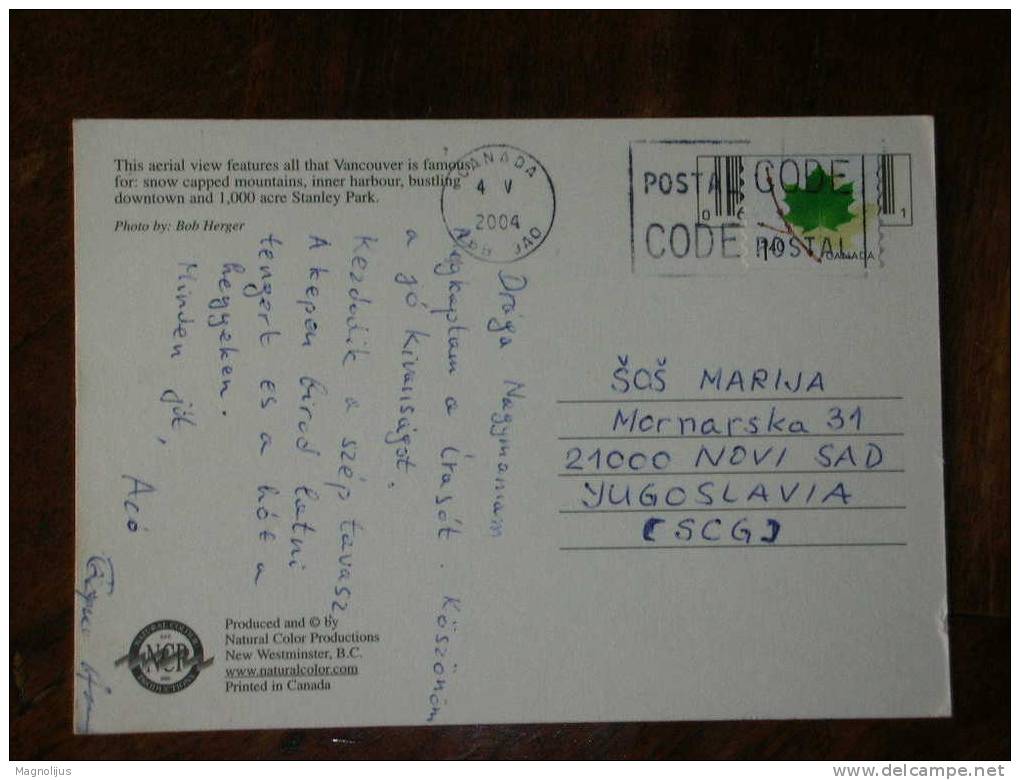 This aerial view features all that Vancouver is famous
for: snow capped mountains, inner harbour, bustling
downtown and 1,000 acre Stanley Park.
Photo by: Bob Herger
CANADA
4 V
2004
POSTAL CODE
CODE POSTAL
CANADA
Drága Nagymamam
Megkaptam a írasót. Köszönöm
a jó kivanságot.
Kezdodik a szép tavasz.
A kepen birod latni
tengert es a hót a
hegyeken.
Minden jót,
Acó
ŠOŠ MARIJA
Mornarska 31
21000 NOVI SAD
YUGOSLAVIA
(SCG)
NATURAL COLOR
NCP
PRODUCTIONS
Produced and © by
Natural Color Productions
New Westminster, B.C.
www.naturalcolor.com
Printed in Canada
Magnolijus
delcampe.net